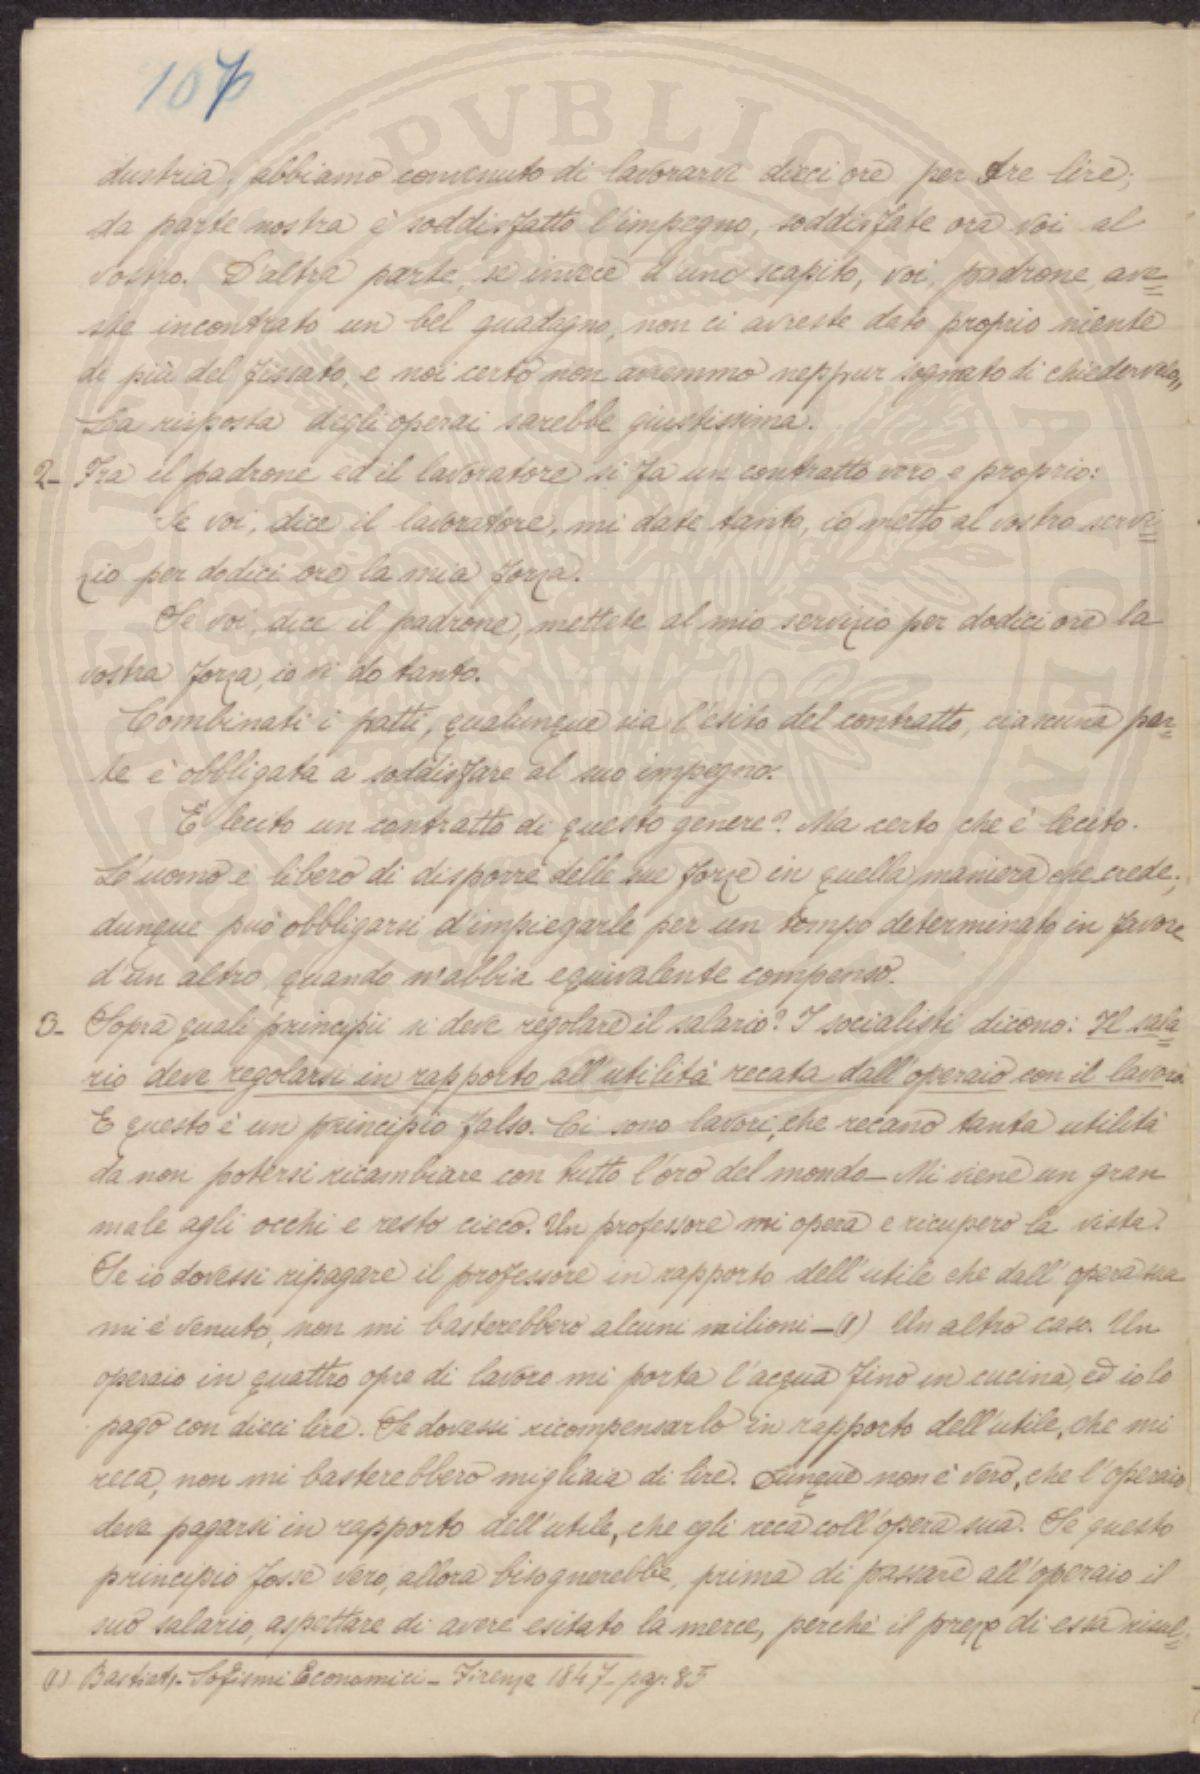 107
dustria, abbiamo convenuto di lavorarvi dieci ore per tre lire;
da parte nostra è soddisfatto l'impegno, soddisfate ora voi al
vostro. D'altra parte, se invece d'uno scapito, voi, padrone, ave=
ste incontrato un bel guadagno, non ci avreste dato proprio niente
di più del fissato, e noi certo non avremmo neppur sognato di chiedervelo„
La risposta degli operai sarebbe giustissima.
2- Fra il padrone ed il lavoratore si fa un contratto vero e proprio:
Se voi, dice il lavoratore, mi date tanto, io metto al vostro servi=
zio per dodici ore la mia forza.
Se voi, dice il padrone, mettete al mio servizio per dodici ore la
vostra forza, io vi do tanto.
Combinati i patti, qualunque sia l'esito del contratto, ciascuna par=
te è obbligata a soddisfare al suo impegno.
È lecito un contratto di questo genere? Ma certo che è lecito.
L'uomo è libero di disporre delle sue forze in quella maniera che crede;
dunque può obbligarsi d'impiegarle per un tempo determinato in favore
d'un altro, quando n'abbia equivalente compenso.
3- Sopra quali principii si deve regolare il salario? I socialisti dicono: Il sala=
rio deve regolarsi in rapporto all'utilità recata dall'operaio con il lavoro.
E questo è un principio falso. Ci sono lavori, che recano tanta utilità
da non potersi ricambiare con tutto l'oro del mondo- Mi viene un gran
male agli occhi e resto cieco. Un professore mi opera e ricupero la vista.
Se io dovessi ripagare il professore in rapporto dell'utile che dall'opera sua
mi è venuto, non mi basterebbero alcuni milioni-(1) Un altro caso. Un
operaio in quattro opre di lavoro mi porta l'acqua fino in cucina, ed io lo
pago con dieci lire. Se dovessi ricompensarlo in rapporto dell'utile, che mi
reca, non mi basterebbero migliaia di lire. Dunque non è vero, che l'operaio
deve pagarsi in rapporto dell'utile, che egli reca coll'opera sua. Se questo
principio fosse vero, allora bisognerebbe, prima di passare all'operaio il
suo salario, aspettare di avere esitato la merce, perchè il prezzo di essa risul=
(1) Bastiat,- Sofismi Economici- Firenze 1847- pag: 85